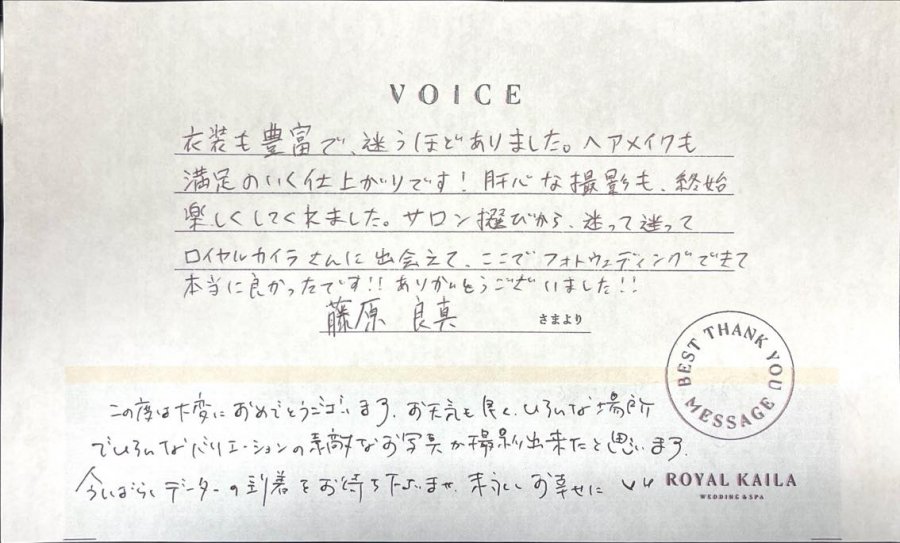 VOICE
衣装も豊富で、迷うほどありました。ヘアメイクも
満足のいく仕上がりです！肝心な撮影も、終始
楽しくしてくれました。サロン選びから、迷って迷って
ロイヤルカイラさんに出会えて、ここでフォトウェディングできて
本当に良かったです!! ありがとうございました!!
藤原 良真 さまより
BEST THANK YOU MESSAGE
この度は大変におめでとうございます。お天気も良く、いろいろな場所
でいろいろなバリエーションの素敵なお写真が撮影出来たと思います。
今しばらくデーターの到着をお待ち下さいませ。末永くお幸せに
ROYAL KAILA
WEDDING & SPA